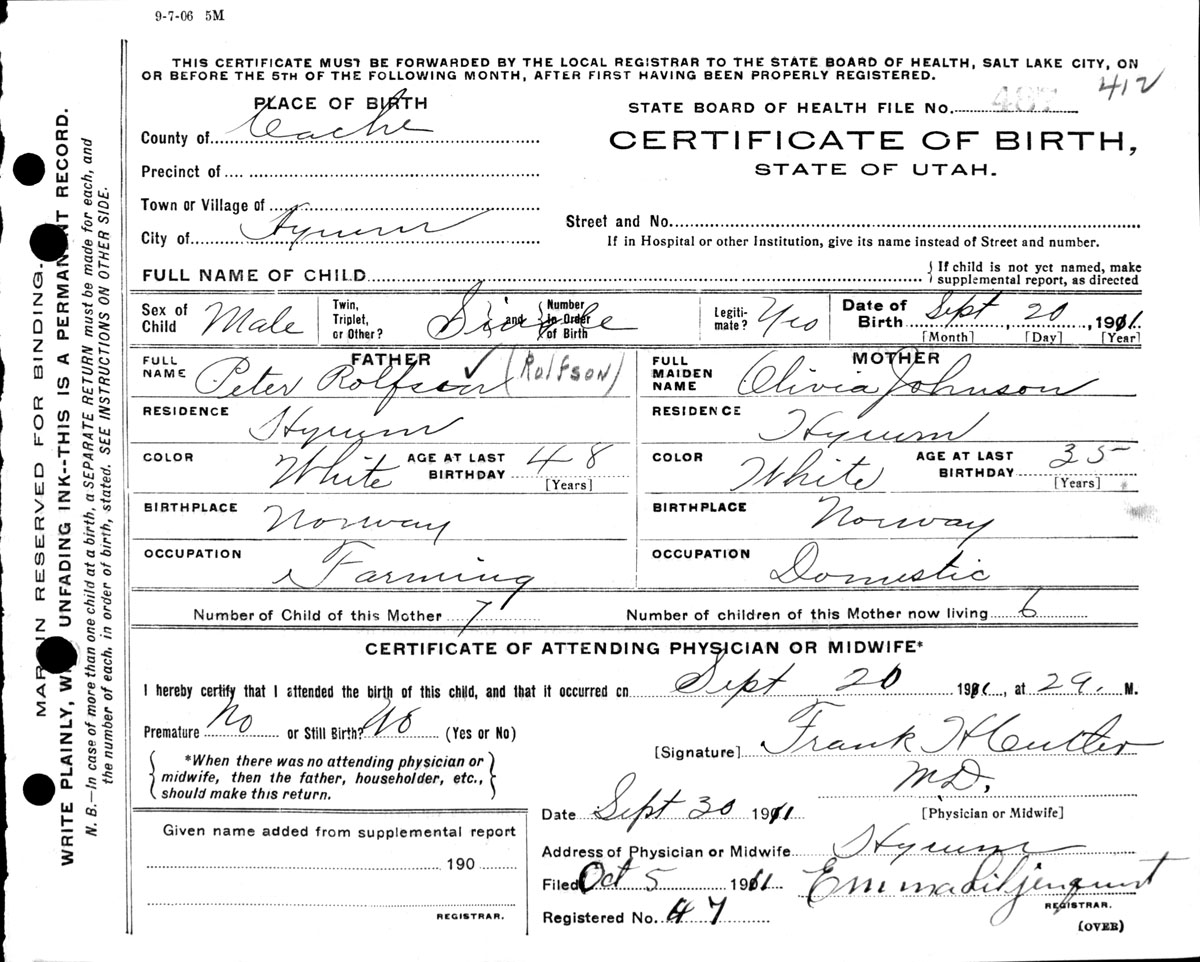 9-7-06 5M
THIS CERTIFICATE MUST BE FORWARDED BY THE LOCAL REGISTRAR TO THE STATE BOARD OF HEALTH, SALT LAKE CITY, ON
OR BEFORE THE 5TH OF THE FOLLOWING MONTH, AFTER FIRST HAVING BEEN PROPERLY REGISTERED.
412
PLACE OF BIRTH
STATE BOARD OF HEALTH FILE No. 487
County of Cache
CERTIFICATE OF BIRTH,
STATE OF UTAH.
Precinct of
Town or Village of
City of Hyrum
Street and No.
If in Hospital or other Institution, give its name instead of Street and number.
FULL NAME OF CHILD
{If child is not yet named, make
supplemental report, as directed
Sex of Child Male
Twin, Triplet, or Other? Single and {Number in Order of Birth
Legitimate? Yes
Date of Birth Sept 20, 1911.
[Month] [Day] [Year]
FATHER
FULL NAME Peter Rolfson ✓ (Rolfson)
MOTHER
FULL MAIDEN NAME Olivia Johnson
RESIDENCE Hyrum
RESIDENCE Hyrum
COLOR White AGE AT LAST BIRTHDAY 48
[Years]
COLOR White AGE AT LAST BIRTHDAY 35
[Years]
BIRTHPLACE Norway
BIRTHPLACE Norway
OCCUPATION Farming
OCCUPATION Domestic
Number of Child of this Mother 7
Number of children of this Mother now living 6
CERTIFICATE OF ATTENDING PHYSICIAN OR MIDWIFE*
I hereby certify that I attended the birth of this child, and that it occurred on Sept 20 1911, at M.
Premature No or Still Birth? No (Yes or No)
[Signature] Frank H Cutler
MD,
[Physician or Midwife]
*When there was no attending physician or
midwife, then the father, householder, etc.,
should make this return.
Date Sept 30 1911
Address of Physician or Midwife Hyrum
Filed Oct 5 1911 Emma Liljenquist
REGISTRAR.
Registered No. 47
(OVER)
Given name added from supplemental report
190
REGISTRAR.
MARGIN RESERVED FOR BINDING.
WRITE PLAINLY, WITH UNFADING INK--THIS IS A PERMANENT RECORD.
N. B.—In case of more than one child at a birth, a SEPARATE RETURN must be made for each, and
the number of each, in order of birth, stated. SEE INSTRUCTIONS ON OTHER SIDE.